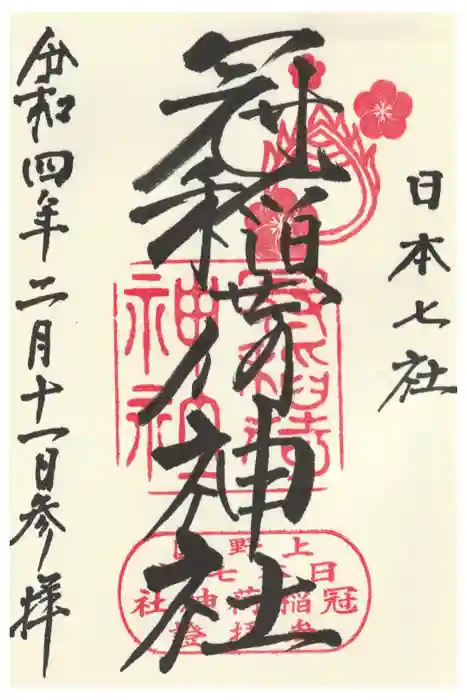 日本七社
冠稲荷神社
令和四年二月十一日参拝
冠稲荷
神社
上野国
日本七社
冠稲荷神社
參拝證